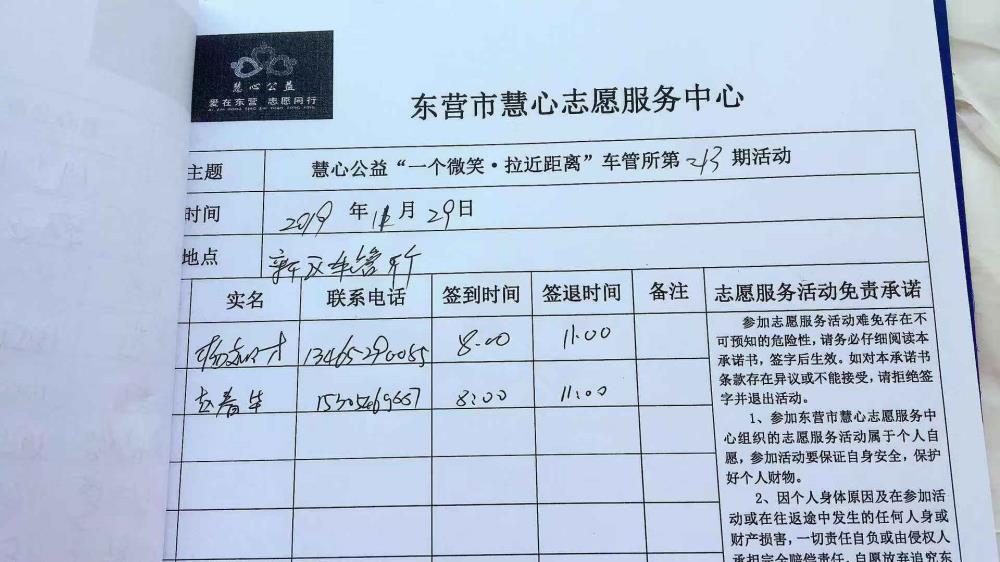 慧心公益
爱在东营 志愿同行
东营市慧心志愿服务中心
主题 慧心公益“一个微笑·拉近距离”车管所第213期活动
时间 2019年11月29日
地点 新区车管所
实名 联系电话 签到时间 签退时间 备注 志愿服务活动免责承诺
13465290085 8:00 11:00
赵春华 8:00 11:00
参加志愿服务活动难免存在不
可预知的危险性,请务必仔细阅读本
承诺书,签字后生效。如对本承诺书
条款存在异议或不能接受,请拒绝签
字并退出活动。
1、参加东营市慧心志愿服务中
心组织的志愿服务活动属于个人自
愿,参加活动要保证自身安全,保护
好个人财物。
2、因个人身体原因及在参加活
动或在往返途中发生的任何人身或
财产损害,一切责任自负或由侵权人
承担完全赔偿责任,自愿放弃追究东